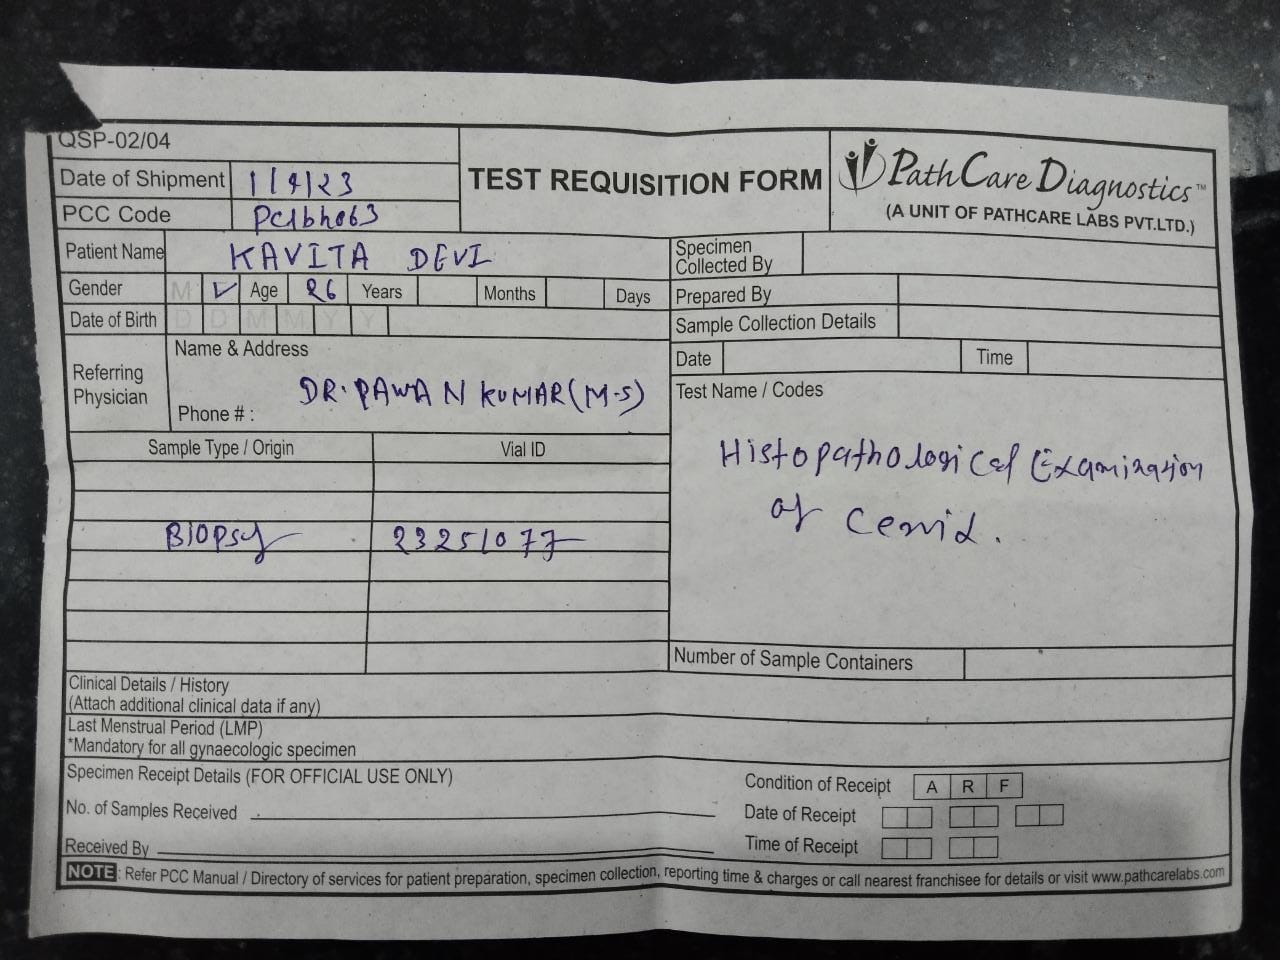 QSP-02/04
Date of Shipment 1/4/23
PCC Code Pc1bh063
TEST REQUISITION FORM
PathCare Diagnostics™
(A UNIT OF PATHCARE LABS PVT.LTD.)
Patient Name KAVITA DEVI
Gender M ✓ Age 26 Years Months Days
Date of Birth D D M M Y Y
Referring Physician
Name & Address
DR. PAWAN KUMAR (M.S)
Phone # :
Specimen Collected By
Prepared By
Sample Collection Details
Date Time
Test Name / Codes
Histopathological Examination
of
Sample Type / Origin Vial ID
Biopsy 23251077
Number of Sample Containers
Clinical Details / History
(Attach additional clinical data if any)
Last Menstrual Period (LMP)
*Mandatory for all gynaecologic specimen
Specimen Receipt Details (FOR OFFICIAL USE ONLY)
No. of Samples Received
Received By
Condition of Receipt A R F
Date of Receipt
Time of Receipt
NOTE : Refer PCC Manual / Directory of services for patient preparation, specimen collection, reporting time & charges or call nearest franchisee for details or visit www.pathcarelabs.com